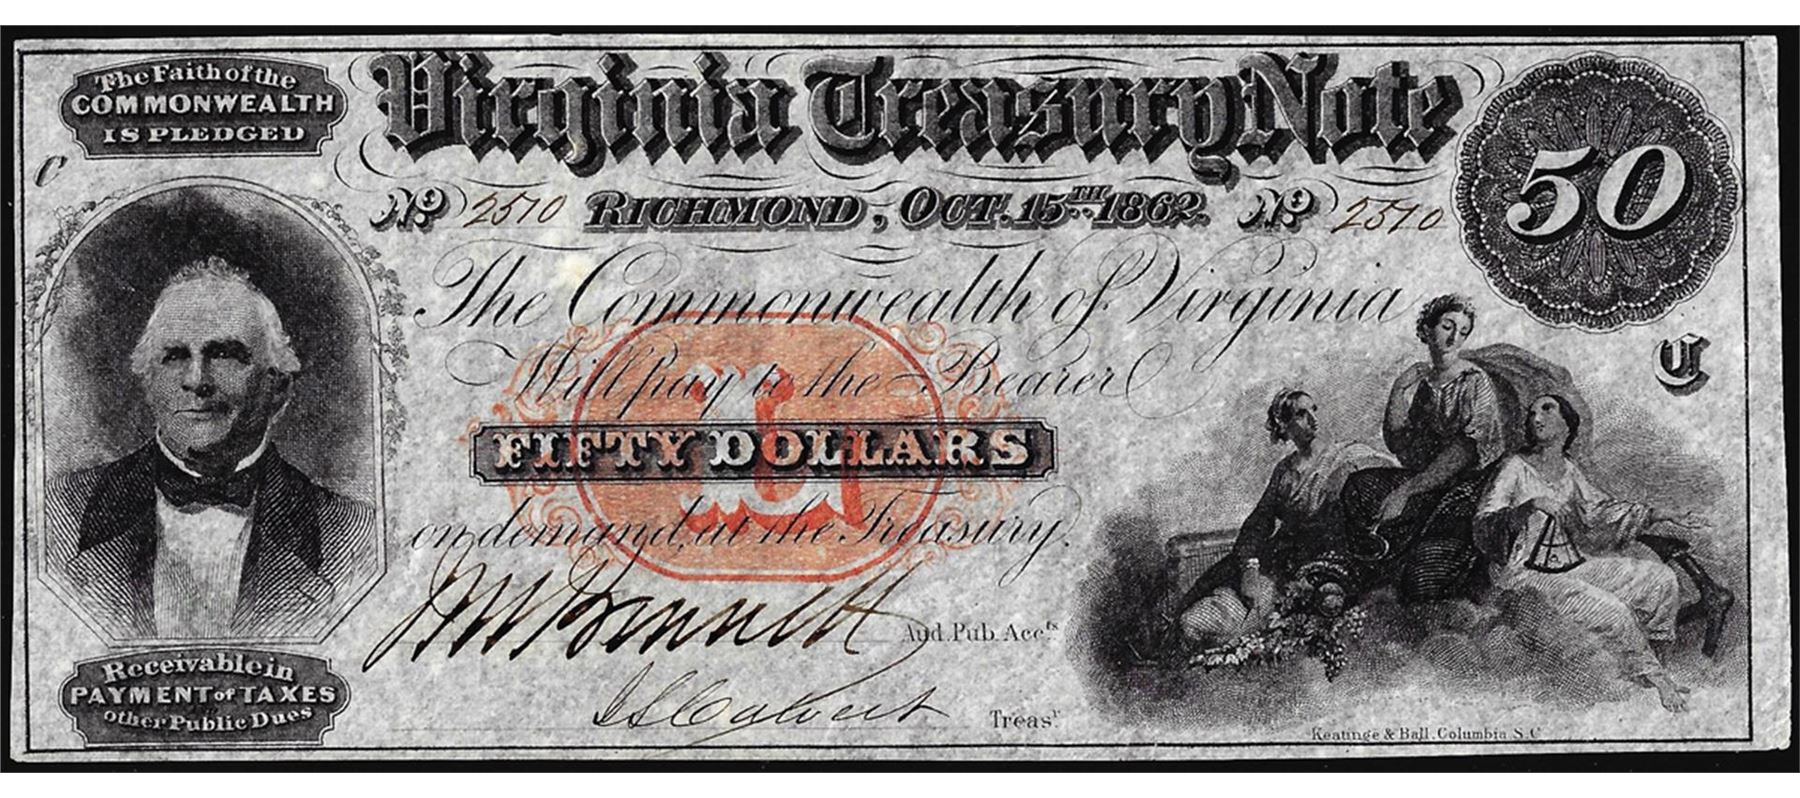 The Faith of the
COMMONWEALTH
IS PLEDGED
Virginia Treasury Note
50
C
No 2510 RICHMOND, OCT. 15TH 1862. No 2510
The Commonwealth of Virginia
C
Will pay to the Bearer
L
FIFTY DOLLARS
on demand, at the Treasury.
J M Bennett Aud. Pub. Accts
Receivable in
PAYMENT of TAXES
and
other Public Dues
J S Calvert Treasr
Keatinge & Ball, Columbia S.C